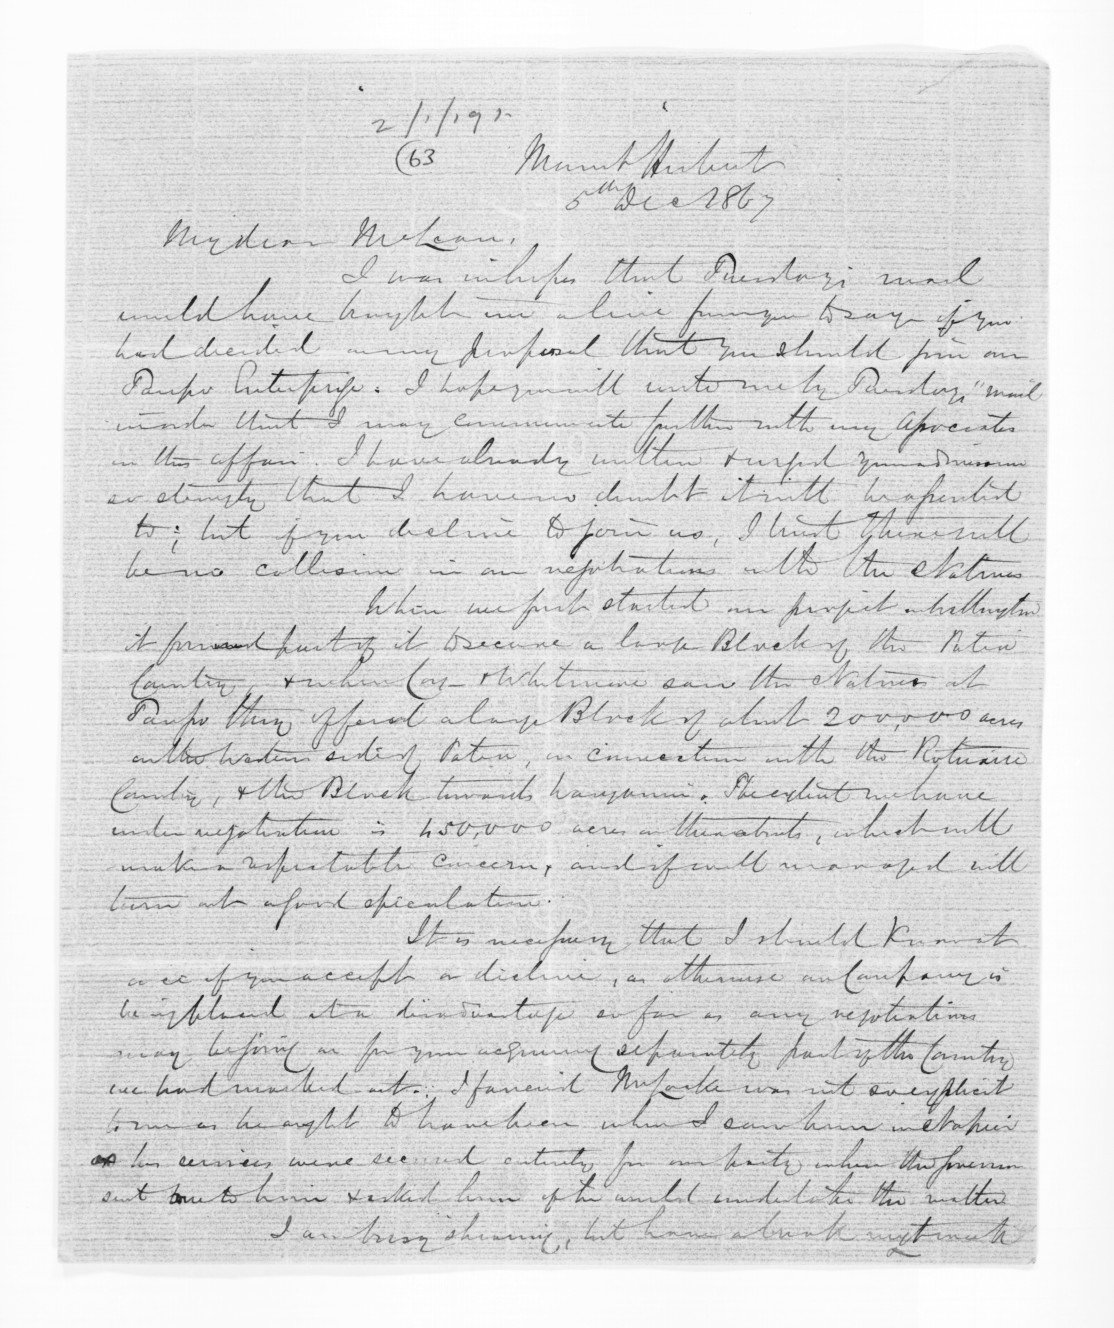 2/1/191
63
Mount Herbert
5th Dec 1867
My dear McLean,
I was in hopes that Tuesday's mail
would have brought me a line from you to say if you
had decided on my proposal that you should join our
Taupo Enterprise. I hope you will write me by Tuesday's mail
in order that I may communicate further with my Associates
in this affair. I have already written & urged your admission
so strongly that I have no doubt it will be assented
to; but if you decline to join us, I trust there will
be no collision in our negotiations with the Natives
When we first started our project at Wellington
it formed part of it to secure a large Block of the Patea
Country, & when Cox & Whitmore saw the Natives at
Taupo they offered a large Block of about 200,000 acres
on the Western side of Patea, in connection with the Rotoaira
Country, & the Block towards Wanganui. The extent we have
under negotiation is 450,000 acres or thereabouts, which will
make a respectable concern, and if well managed will
turn out a good speculation.
It is necessary that I should know at
once if you accept or decline, as otherwise our Company is
being placed at a disadvantage so far as any negotiations
may be going on for your acquiring separately part of the Country
we had marked out. I fancied Mr Locke was not so explicit
to me as he ought to have been when I saw him in Napier
as his services were secured entirely for our party when the Governor
sent to him & asked him if he would undertake the matter
I am busy shearing, but have a break next week